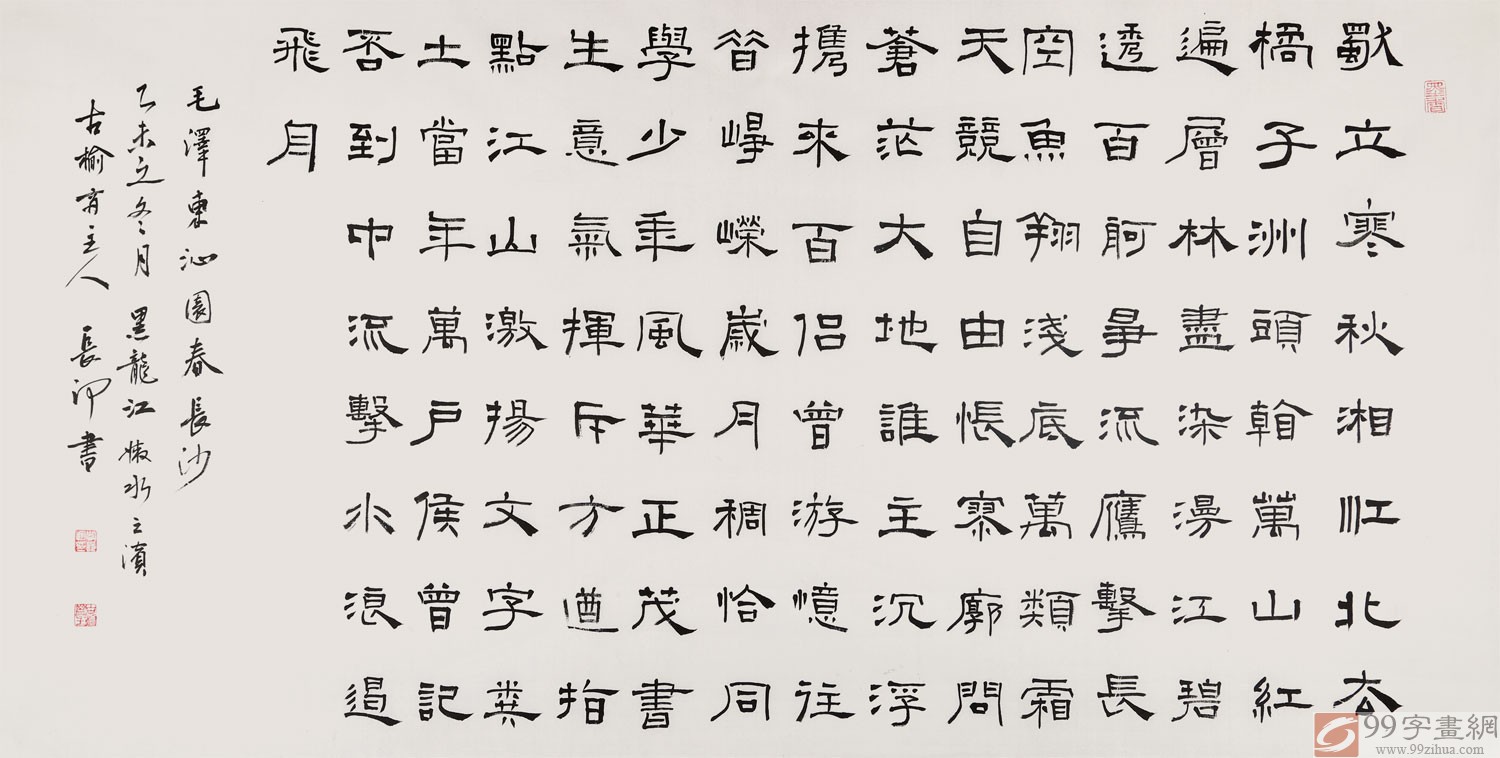 獨立寒秋湘江北去
橘子洲頭看萬山紅
遍層林盡染漫江碧
透百舸爭流鷹擊長
空魚翔淺底萬類霜
天競自由悵寥廓問
蒼茫大地誰主沉浮
攜來百侶曾游憶往
昔崢嶸歲月稠恰同
學少年風華正茂書
生意氣揮斥方遒指
點江山激揚文字糞
土當年萬戶侯曾記
否到中流擊水浪遏
飛舟
毛澤東沁園春長沙
乙未之冬月黑龍江嫩水之濱
古榆齋主人長河書
99字畫網
www.99zihua.com